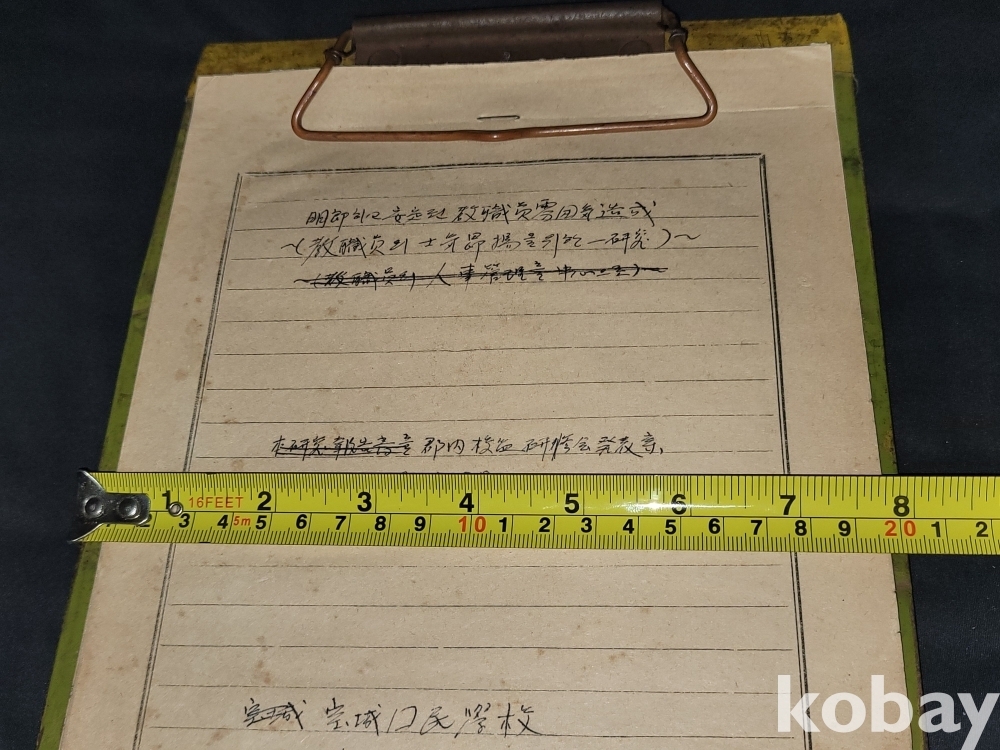 明郎하고 安定된 教職員雰囲気造成
~(教職員의 士気昻揚을 위한 一研究)~
~(教職員의 人事管理를 中心으로)~
本研究報告書를 郡内 校監 研修会 発表
1 16FEET 2 3 4 5 6 7 8
2 3 4 5m 5 6 7 8 9 10 1 2 3 4 5 6 7 8 9 20 1 2
宝城 宝城国民学校
kobay